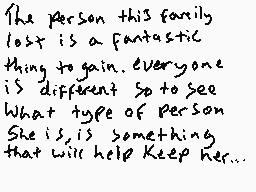 The person this family
lost is a fantastic
thing to gain. everyone
is different so to see
What type of person
She is, is something
that will help Keep her...